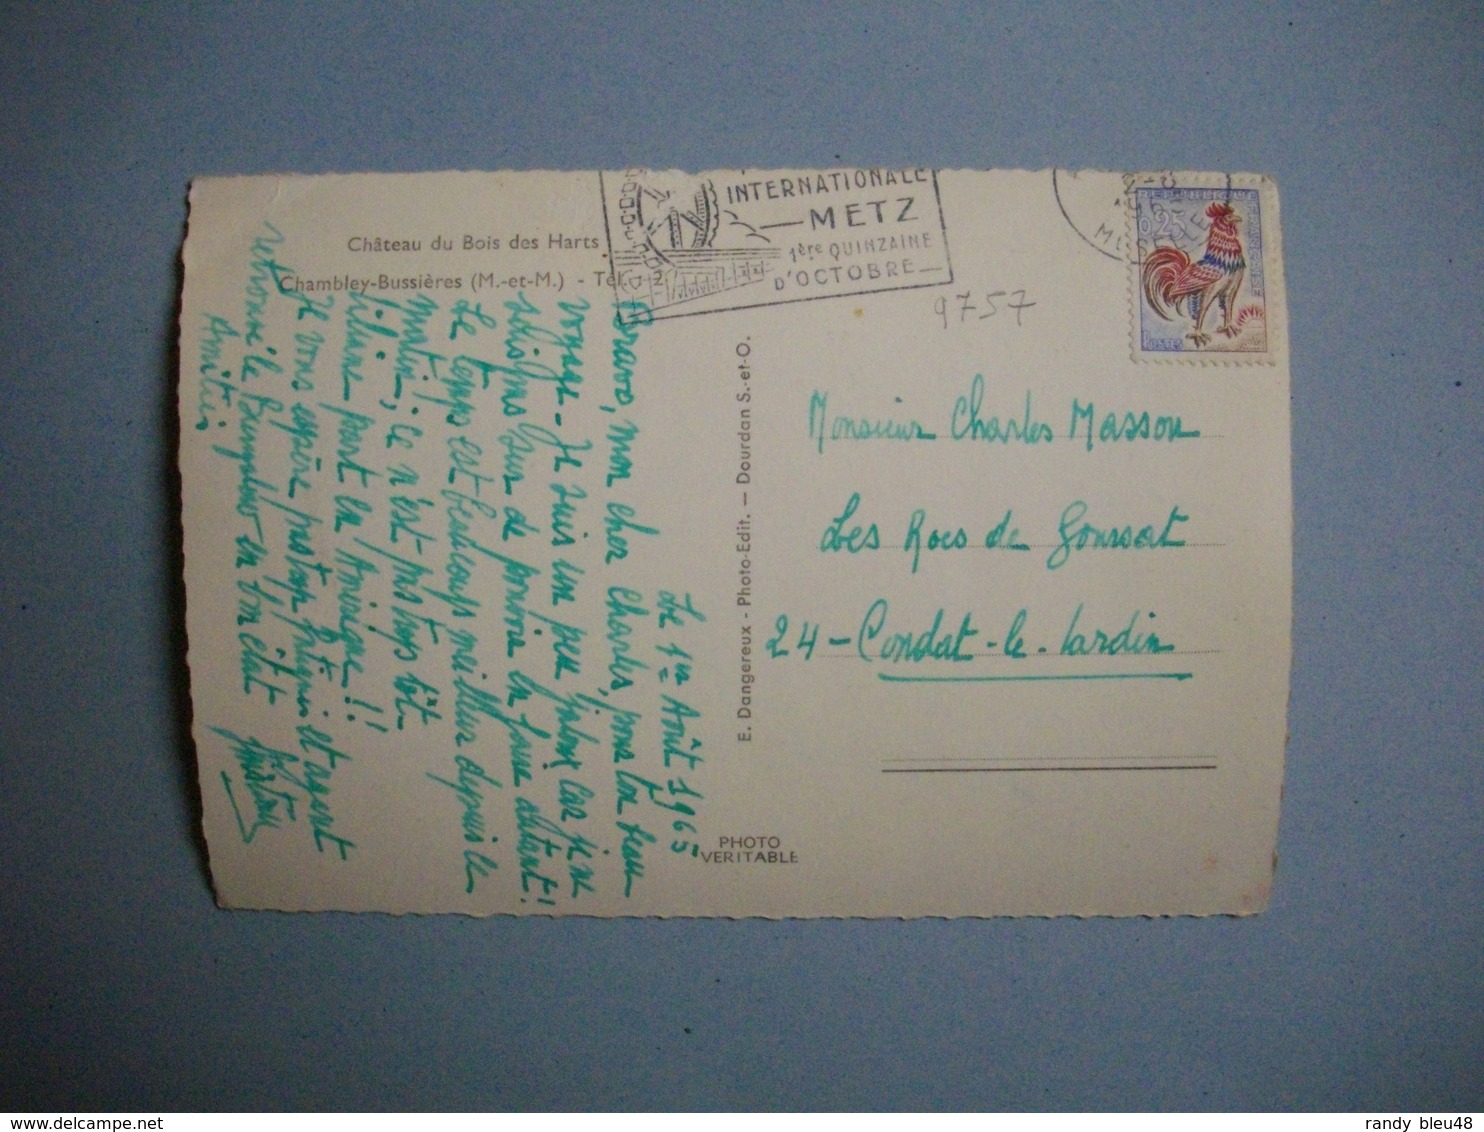 Château du Bois des Harts
Chambley-Bussières (M.-et-M.) - Tél. 2
INTERNATIONALE
METZ
1ère QUINZAINE
D'OCTOBRE
MOSELLE
0,25
POSTES
9757
Le 1er Août 1965
Bravo, mon cher Charles, pour ton beau
voyage - Je suis un peu jaloux car je ne
suis pas sûr de pouvoir en faire autant!
Le temps est beaucoup meilleur depuis le
matin; ce n'est pas trop tôt.
Liliane part en Amérique!!
Je vous espère pas trop fatigués et ayant
retrouvé le Bungalow en bon état
Amitiés
E. Dangereux - Photo-Edit. — Dourdan S.-et-O.
PHOTO
VERITABLE
Monsieur Charles Masson
Les Rocs de Goursat
24 - Condat-le-Lardin
randy_bleu48